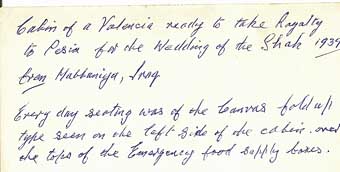 Cabin of a Valencia ready to take Royalty
to Persia for the Wedding of the Shah 1939
from Habbaniya, Iraq
Every day seating was of the Canvas fold up
type seen on the left side of the cabin. over
the tops of the Emergency food supply boxes.